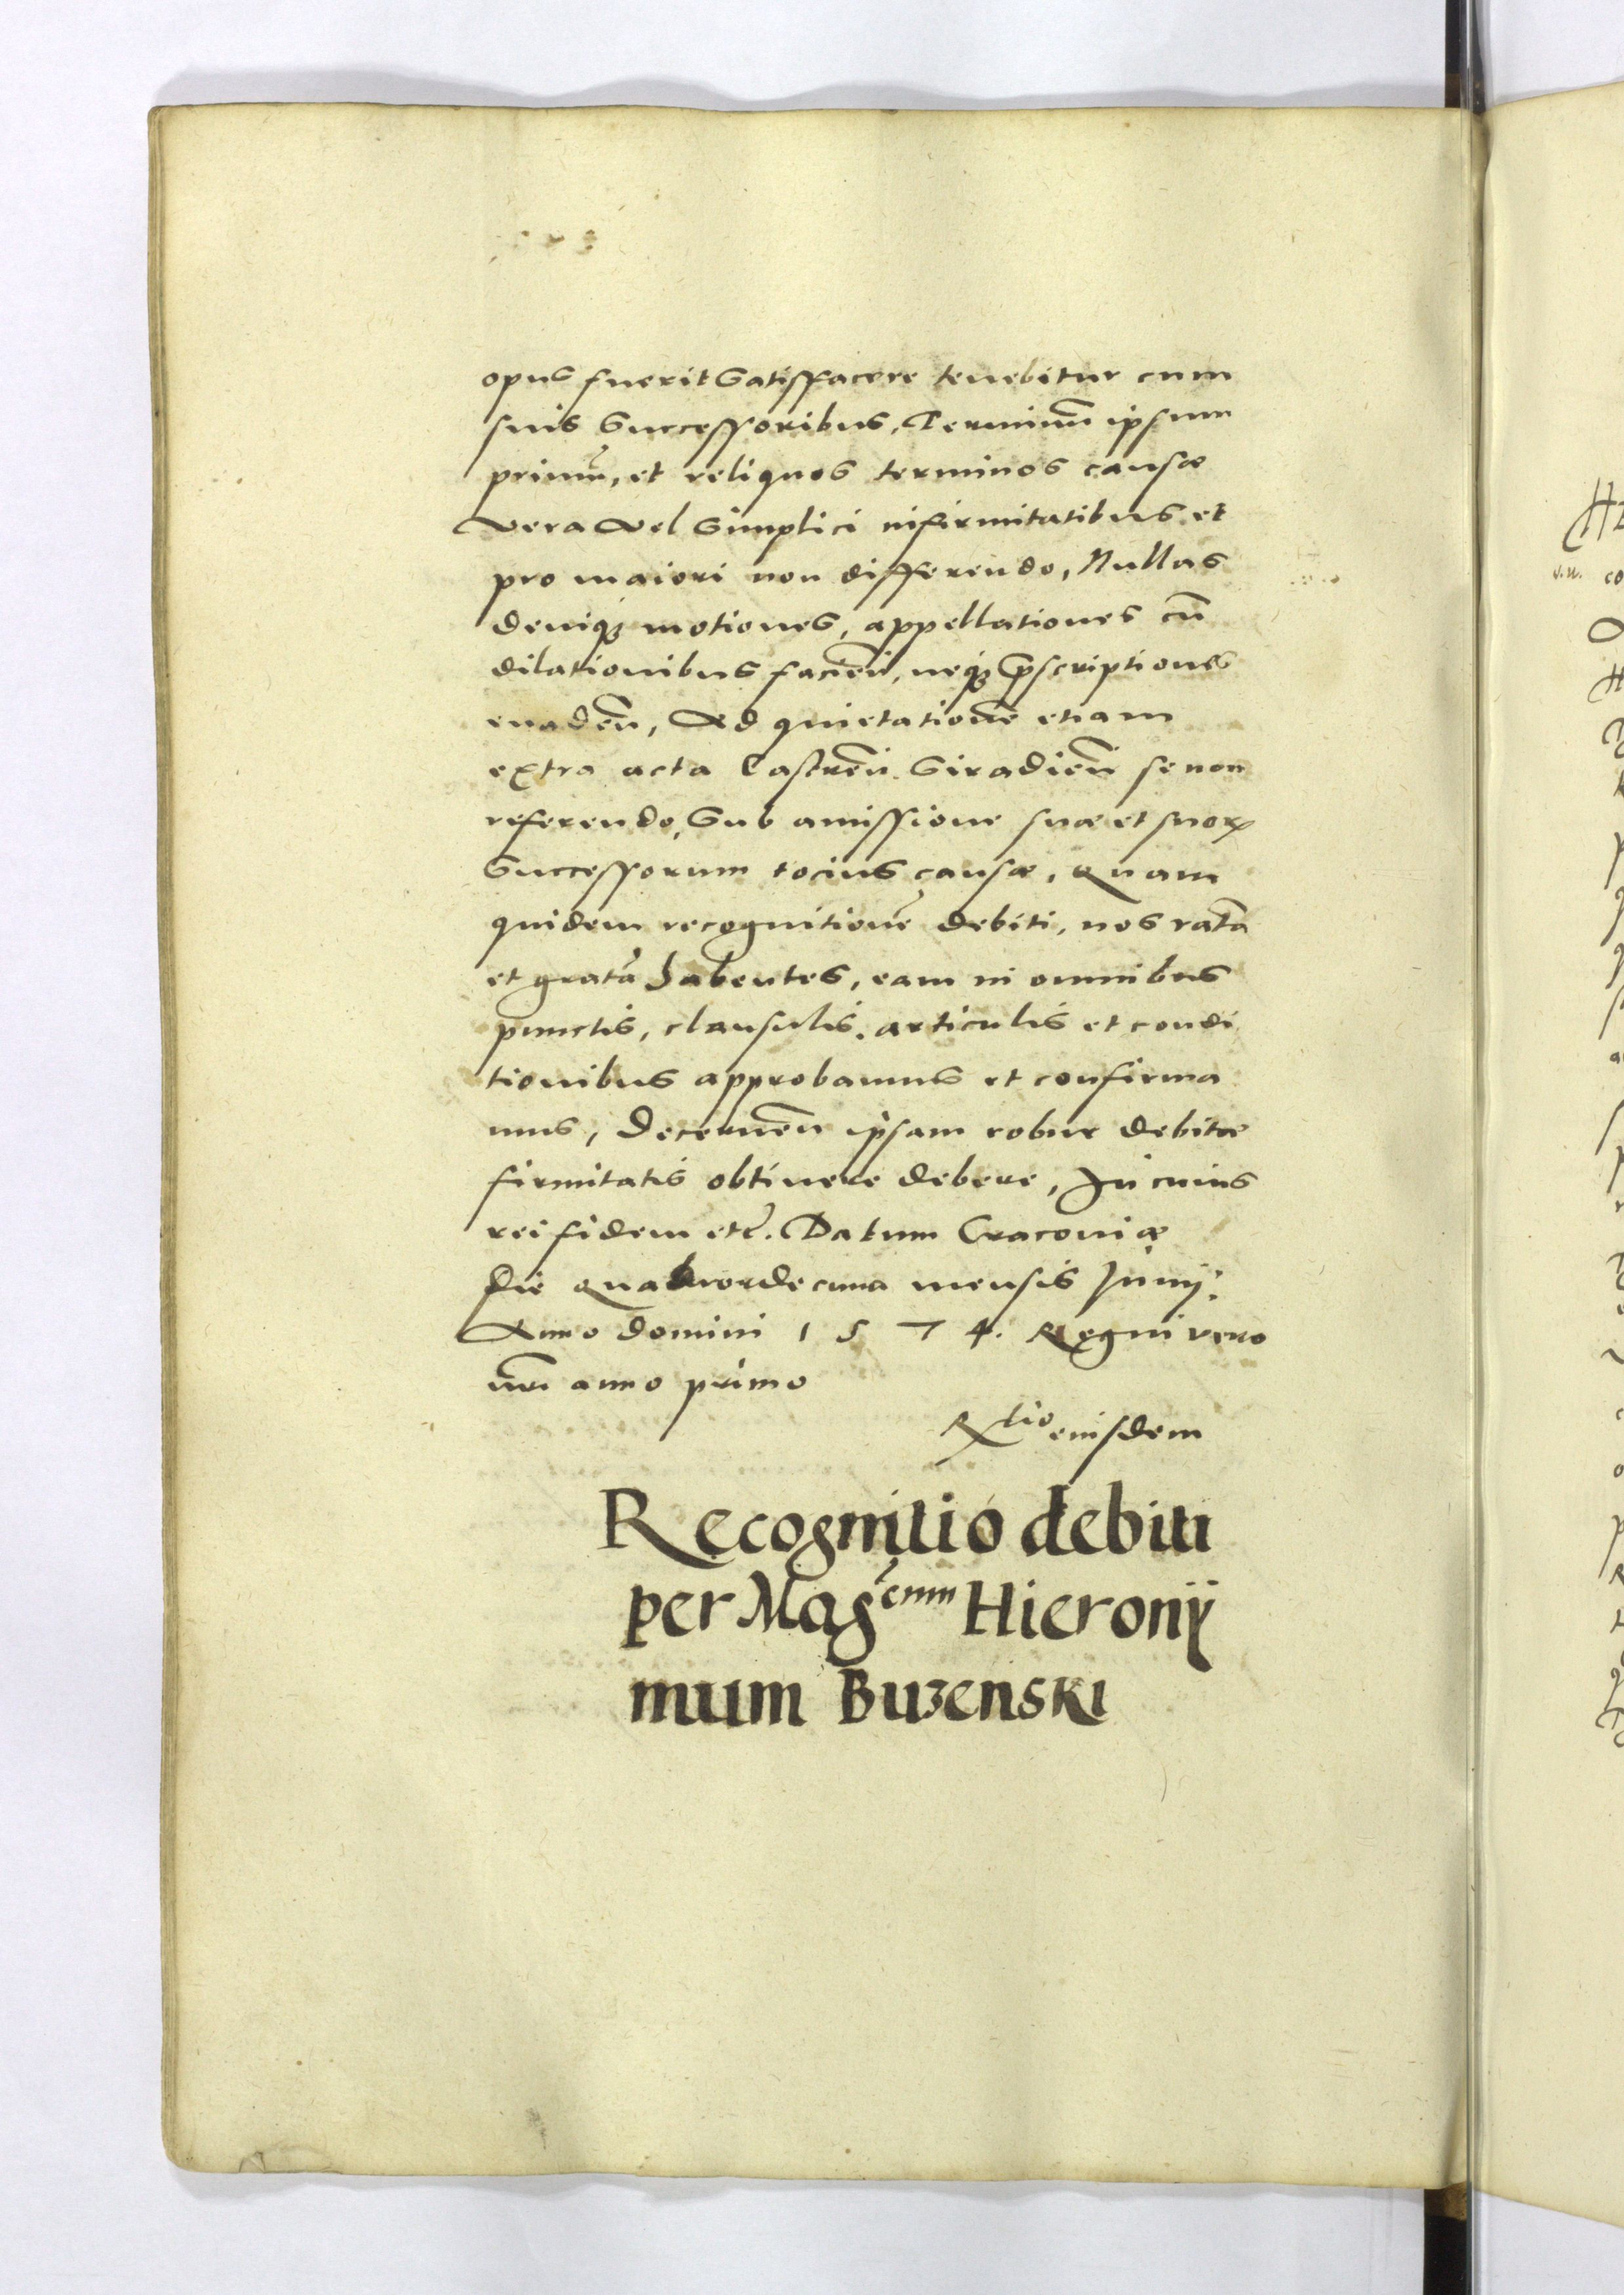 opus fuerit Satisfacere tenebitur cum
suis Successoribus, Terminū ipsum
primū, et reliquos terminos causæ
vera vel Simplici infirmitatibus et
pro maiori non differendo, Nullas
deniqȝ motiones, appellationes cū
dilationibus facien̄, neqȝ p̄scriptiones
euaden̄, Ad quietationē etiam
extra acta Castren̄. Siradien̄ se non
referendo, Sub amissione suæ et suoꝝ
Successorum tocius causæ, Quam
quidem recognitionē debiti, nos ratā
et gratā habentes, eam in omnibus
punctis, clausulis, articulis et condi
tionibus approbamus et confirma
mus, Decernen̄ ipsam robur debitæ
firmitatis obtinere debere, In cuius
rei fidem etc̄. Datum Cracouiæ
die quatuordecima mensis Junij.
Anno domini 1574. Regni vero
nr̄i anno primo
Rtio eiusdem
Recognitio debiti
per Mag͂cum Hierony
mum Buzenski